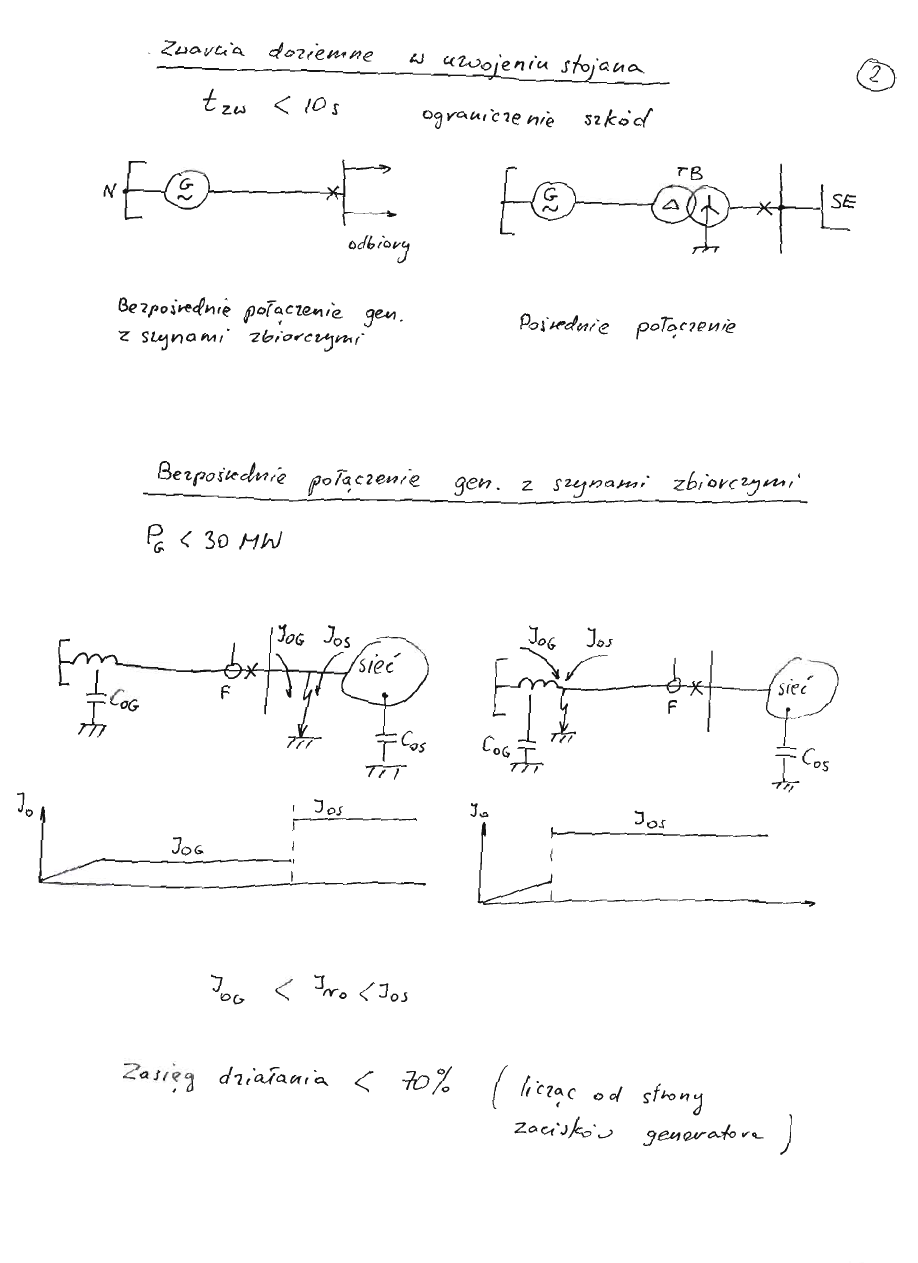 Zwarcia doziemne w uzwojeniu stojana
2
t zw < 10 s ograniczenie szkód
N G ~ odbiory
G ~ TB Δ SE
Bezpośrednie połączenie gen.
z szynami zbiorczymi
Pośrednie połączenie
Bezpośrednie połączenie gen. z szynami zbiorczymi
PG < 30 MW
COG F JOG JOS sieć COS
JOG JOS COG F sieć COS
Jo JOG JOS
Jo JOS
JOG < Jro < JOS
Zasięg działania < 70% ( licząc od strony
zacisków generatora )